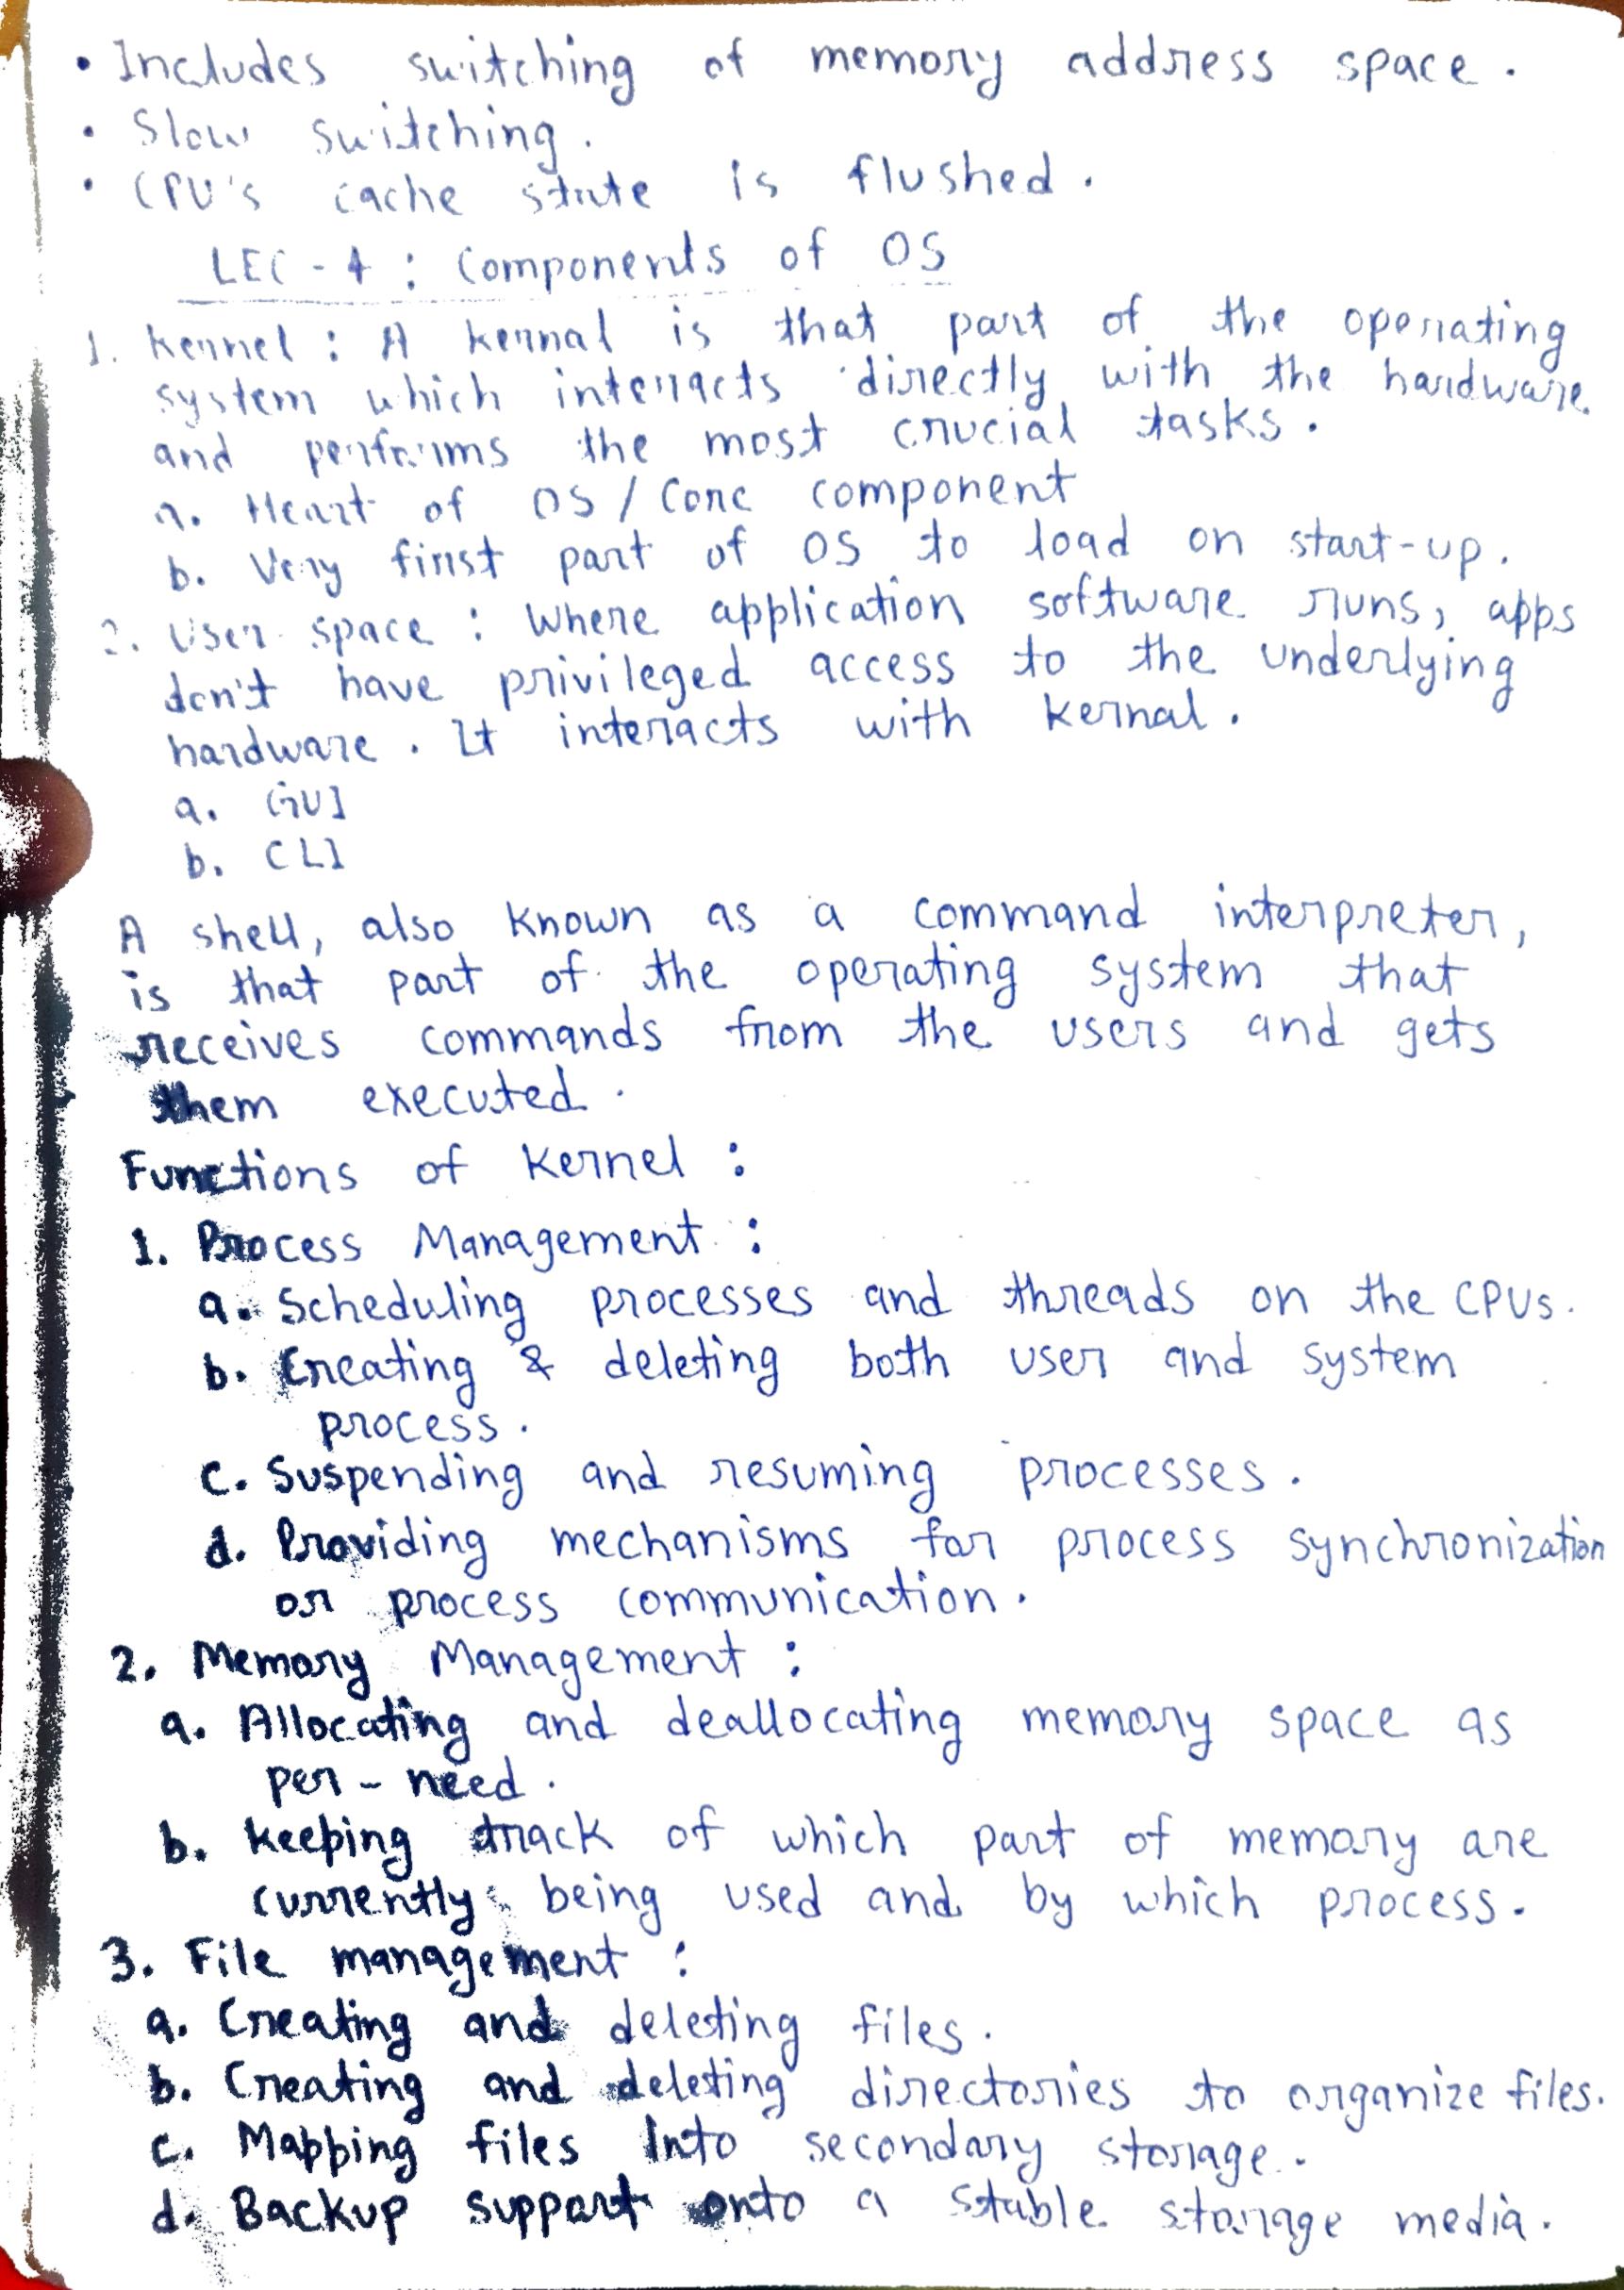 • Includes switching of memory address space.
• Slow switching.
• CPU's cache state is flushed.
LEC-4 : Components of OS
1. Kernel : A kernal is that part of the operating
system which interracts directly with the hardware
and performs the most crucial tasks.
a. Heart of OS / Core component
b. Very first part of OS to load on start-up.
2. User space : Where application software runs, apps
don't have privileged access to the underlying
hardware. It interacts with kernal.
a. GUI
b. CLI
A shell, also known as a command interpreter,
is that part of the operating system that
receives commands from the users and gets
them executed.
Functions of Kernel :
1. Process Management :
a. Scheduling processes and threads on the CPUs.
b. Creating & deleting both user and system
process.
c. Suspending and resuming processes.
d. Providing mechanisms for process synchronization
or process communication.
2. Memory Management :
a. Allocating and deallocating memory space as
per - need.
b. keeping track of which part of memory are
currently being used and by which process.
3. File management :
a. Creating and deleting files.
b. Creating and deleting directories to organize files.
c. Mapping files Into secondary storage.
d. Backup support onto a stable storage media.